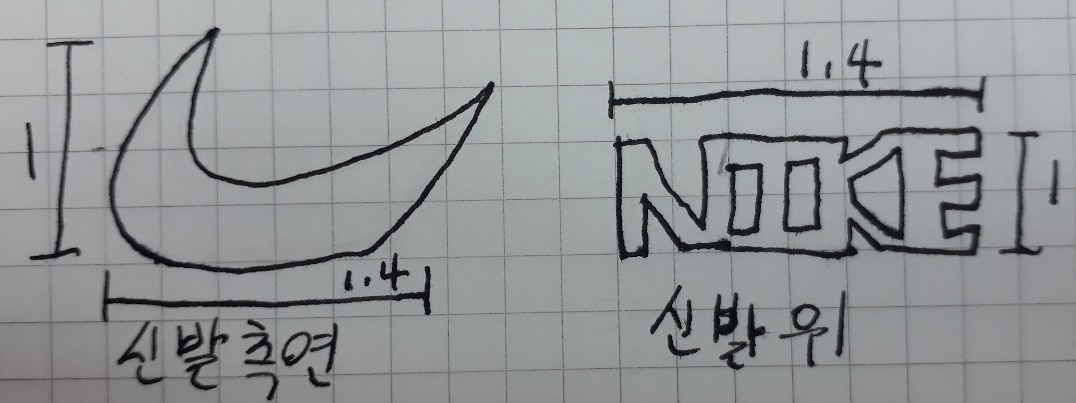 1
1.4
신발측연
1.4
NIKE
1
신발위